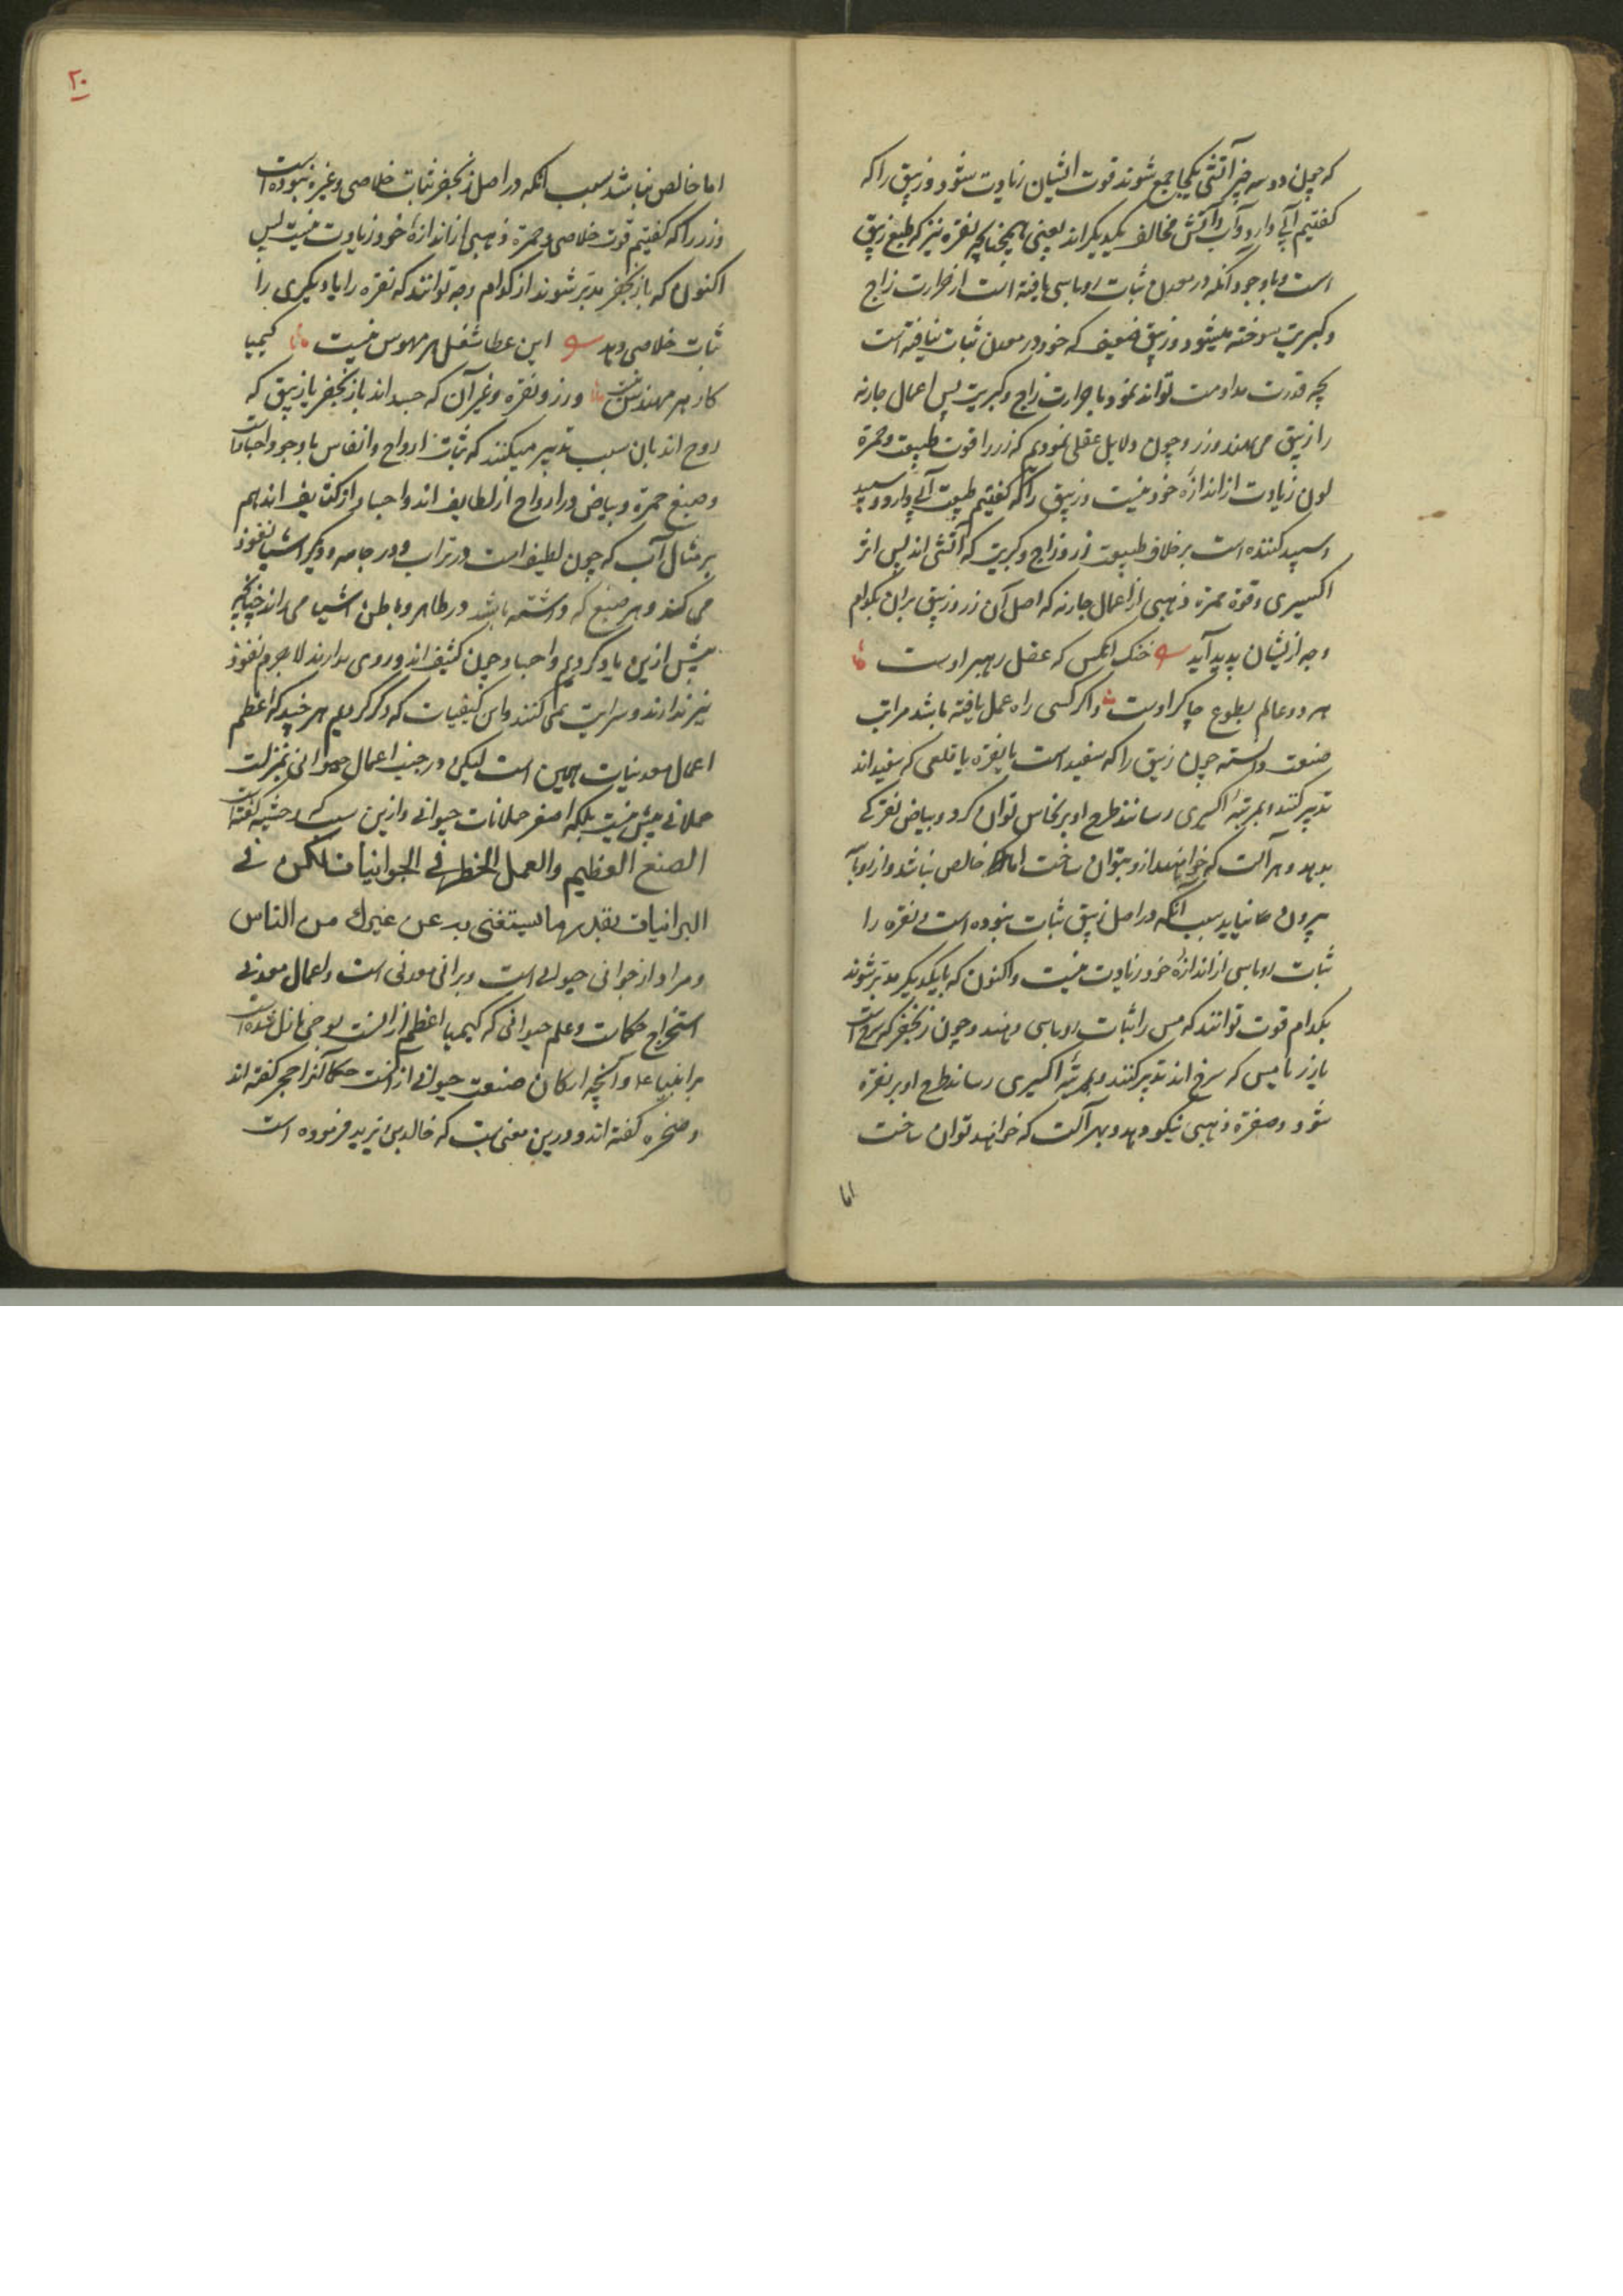 که چون دو سه چیز آتشی یکجا جمع شوند قوت ایشان زیادت شود و زیبق را که
کفتیم آبی دارد و آب و آتش مخالف یکدیکراند یعنی همچنانچه نقره نیز که طبع زیبق
است و با وجود آنکه در معدن ثبات روباسی یافته است از حرارت زاج
و کبریت سوخته میشود و زیبق ضعیف که خود در معدن ثبات نیافته است
چه قدرت مداومت تواند نمود با حرارت زاج و کبریت پس اعمال چارنه
را زیبق می‌دهند و زر و چون دلایل عقلی نمودیم که زر را قوت طبیعت و حمرة
لون زیادت از اندازهٔ خود نیست و زیبق را که کفتیم طبیعت آبی دارد و سپید
و سپید کننده است برخلاف طبیعت زر و زاج و کبریت که آتشی اند پس اثر
اکسیری و قوة حمرة ذهبی از اعمال چارنه که اصل آن زر و زیبق بر آن بکدام
وجه از یشان پدید آید خنک آنکس که عقل رهبر اوست
هر دو عالم بطوع چاکر اوست و اکر کسی راه عمل یافته باشد مراتب
صنعت دانسته چون زیبق را که سفید است با نقره یا قلعی که سفیداند
تدبیر کنند و بمرتبهٔ اکسیری رسانند طرح او بر نحاس توان کرد و بیاض نقرکی
بدهد و هر آلت که خواهند از و بتوان ساخت اما خالص نباشد و از روباس
بیرون نیاید بسبب آنکه در اصل زیبق ثبات نبوده است و نقره را
ثبات روباسی از اندازهٔ خود زیادت نیست و اکنون که با یکدیکر مدبر شوند
بکدام قوت توانند که مس را ثبات روباسی دهند و چون زنجفر که سرخ است
با زر یا مس که سرخ اند تدبیر کنند و بمرتبهٔ اکسیری رسانند طرح او بر نقره
شود و صفرة ذهبی نیکو دهد و هر آلت که خواهند توان ساخت
اما
۲۰
اما خالص نباشد بسبب آنکه در اصل زنجفر ثبات خلاصی و غیره نبوده است
و زر را که کفتیم قوت خلاصی و حمرة ذهبی از اندازهٔ خود زیادت نیست پس
اکنون که با زنجفر مدبر شوند از کدام وجه توانند که نقره را یا دیکری را
ثبات خلاصی دهد این عطا شغل هر مهوس نیست کیمیا
کار هر مهندس نیست و زر و نقره و غیر آن که جسداند با زنجفر یا زیبق که
روح اند بان سبب تدبیر میکنند که ثبات ارواح و انفاس با وجود اجساد است
و صبغ حمرة و بیاض در ارواح از لطایف اند و اجساد از کثایف اندهم
بر مثال آب که چون لطیف است در تراب و در جامه و دیکر اشیا نفوذ
می کند و هر صبغ که داشته باشد در ظاهر و باطن اشیا می راند چنانچه
پیش ازین یاد کردیم و اجساد چون کثیف اند و روی ندارند لاجرم نفوذ
نیز ندارند و سرایت نمی کنند و این کیفیات که ذکر کردیم هر چند که اعظم
اعمال معدنیات همین است لیکن در جنب اعمال حیوانی بمنزلت
حملانی بیش نیست بلکه اصغر حملانات حیوانی و ازین سبب که ارد حشیه کفته است
الصنع العظیم والعمل الخطیر فی الجوانیات لکن فی
البرانیات بقدر ما یستغنی به عن غیرك من الناس
و مراد از جوانی حیوانی است و برانی معدنی است و اعمال معدنی
استخراج حکمات و علم حیوانی که کیمیا اعظم از آنست بوحی نازل شده است
بر انبیا ع و آنچه ارکان صنعت حیوانی از آنست حکما آنرا حجر کفته اند
و صخره کفته اند و درین معنی است که خالد بن یزید فرموده است